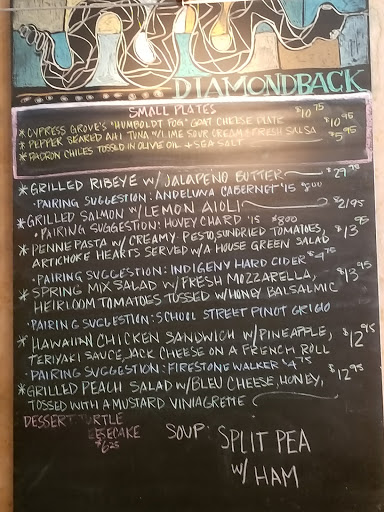 DIAMONDBACK
SMALL PLATES
* CYPRESS GROVE'S "HUMBOLDT FOG" GOAT CHEESE PLATE $10.75
* PEPPER SEARED AHI TUNA W/LIME SOUR CREAM & FRESH SALSA $10.95
* PADRON CHILES TOSSED IN OLIVE OIL + SEA SALT $5.95
* GRILLED RIBEYE W/ JALAPEÑO BUTTER $29.95
· PAIRING SUGGESTION: ANDELUNA CABERNET '15
* GRILLED SALMON W/ LEMON AIOLI $21.95
· PAIRING SUGGESTION: HOVEY CHARD '15 $8.00
* PENNE PASTA W/ CREAMY PESTO, SUNDRIED TOMATOES, $13.95
ARTICHOKE HEARTS SERVED W/A HOUSE GREEN SALAD
· PAIRING SUGGESTION: INDIGENY HARD CIDER $4.75
* SPRING MIX SALAD W/ FRESH MOZZARELLA, $13.95
HEIRLOOM TOMATOES TOSSED W/ HONEY BALSALMIC
· PAIRING SUGGESTION: SCHOOL STREET PINOT GRIGIO
* HAWAIIAN CHICKEN SANDWICH W/ PINEAPPLE, $12.95
TERIYAKI SAUCE, JACK CHEESE ON A FRENCH ROLL
· PAIRING SUGGESTION: FIRESTONE WALKER $4.75
* GRILLED PEACH SALAD W/BLEU CHEESE, HONEY, $12.95
TOSSED WITH A MUSTARD VINIAGRETTE
DESSERT TURTLE
CHEESECAKE
$6.25
SOUP: SPLIT PEA
W/ HAM